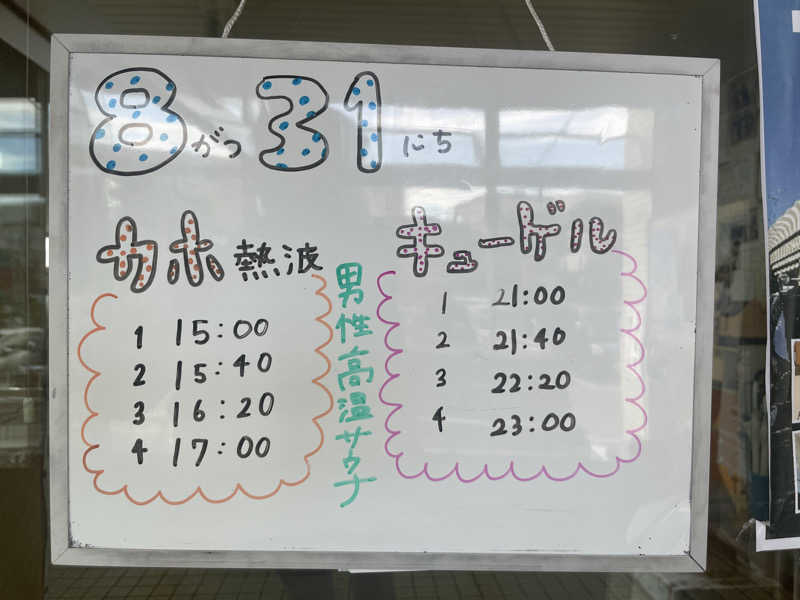 8がつ31にち
カホ熱波
1 15:00
2 15:40
3 16:20
4 17:00
男性高温サウナ
キューゲル
1 21:00
2 21:40
3 22:20
4 23:00